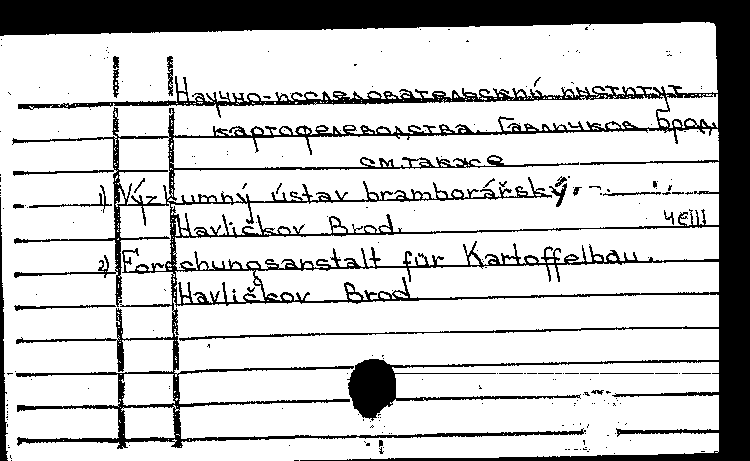 Научно-исследовательский институт
картофелеводства. Гавличков Брод.
см. также
1) Výzkumný ústav bramborářský.
Havlíčkov Brod. ЧСШ
2) Forschungsanstalt für Kartoffelbau.
Havličkov Brod